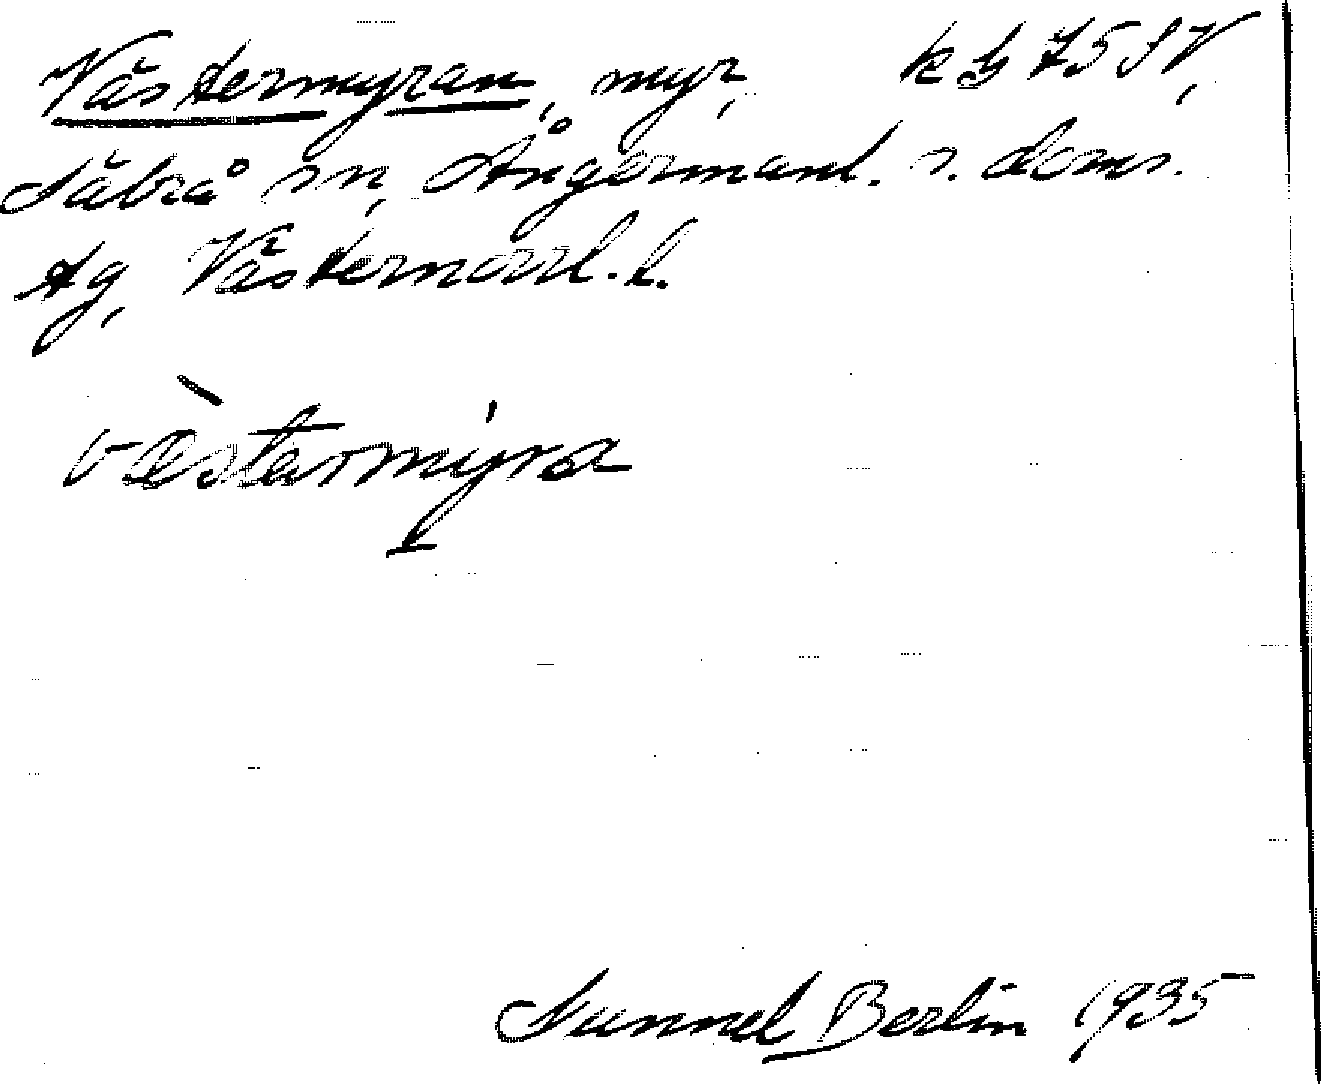 Västermyran, myr, kbl 75 SV,
Säbrå sn, Ångermanl. s. doms.
tg, Västernorrl. l.
vèstarmýra
Gunnel Berlin 1935